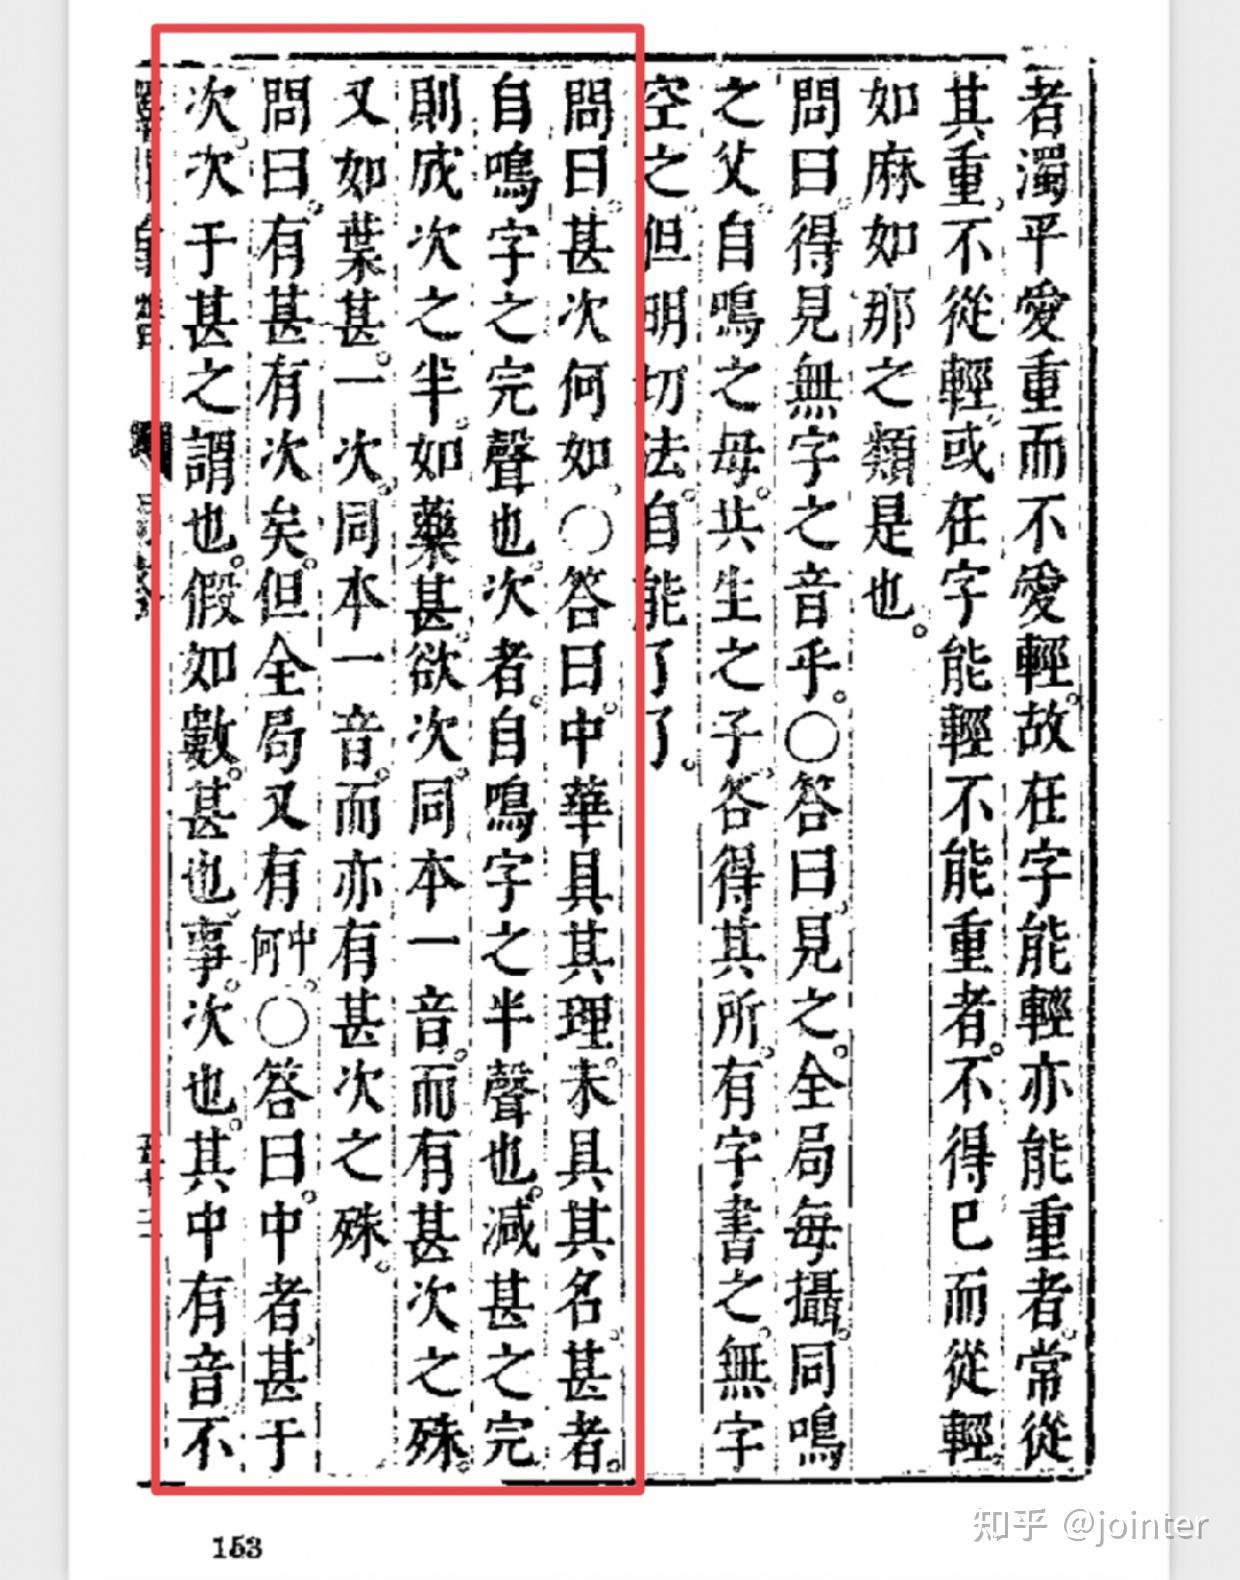 者濁平愛重而不愛輕。故在字能輕亦能重者。常從
其重。不從輕。或在字能輕不能重者。不得已而從輕。
如麻如那之類是也。
問曰。得見無字之音乎。○答曰。見之。全局每攝。同鳴
之父。自鳴之母。共生之子。各得其所。有字書之。無字
空之。但明切法。自能了了。
問曰。甚次何如。○答曰。中華具其理。未具其名。甚者。
自鳴字之完聲也。次者。自鳴字之半聲也。減甚之完
則成次之半。如藥甚。欲次。同本一音。而有甚次之殊。
又如葉甚。一次。同本一音。而亦有甚次之殊。
問曰。有甚有次矣。但全局又有中何。○答曰。中者。甚于
次。次于甚之謂也。假如數。甚也。事。次也。其中有音不
153
知乎 @jointer